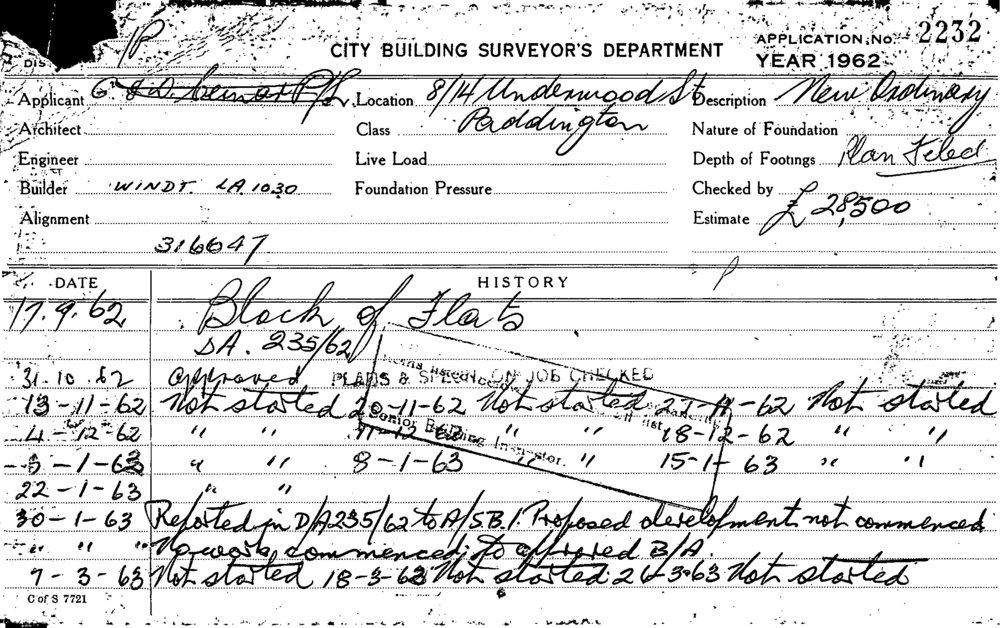 CITY BUILDING SURVEYOR'S DEPARTMENT
APPLICATION No. 2232
YEAR 1962
DIS
Applicant G & D P/L Location 8/14 Underwood St Description New Ordinary
Architect Class Paddington Nature of Foundation
Engineer Live Load Depth of Footings Plan Filed
Builder WINDT. LA 1030 Foundation Pressure Checked by
Alignment Estimate £ 28,500
316647
DATE HISTORY
17.9.62 Block of Flats
DA. 235/62
31.10.62 approved PLANS & SPECN. ON JOB CHECKED
13-11-62 Not started 20-11-62 Not started 27-11-62 Not started
4-12-62 " " 11-12-62 " " 18-12-62 " "
Senior Building Inspector.
-1-63 " " 8-1-63 " " 15-1-63 " "
22-1-63 " "
30-1-63 Reported in D/A 235/62 to A/SB.I. Proposed development not commenced
" " " No work commenced to approved B/A.
7-3-63 Not started 18-3-63 Not started 26-3-63 Not started
C of S 7721